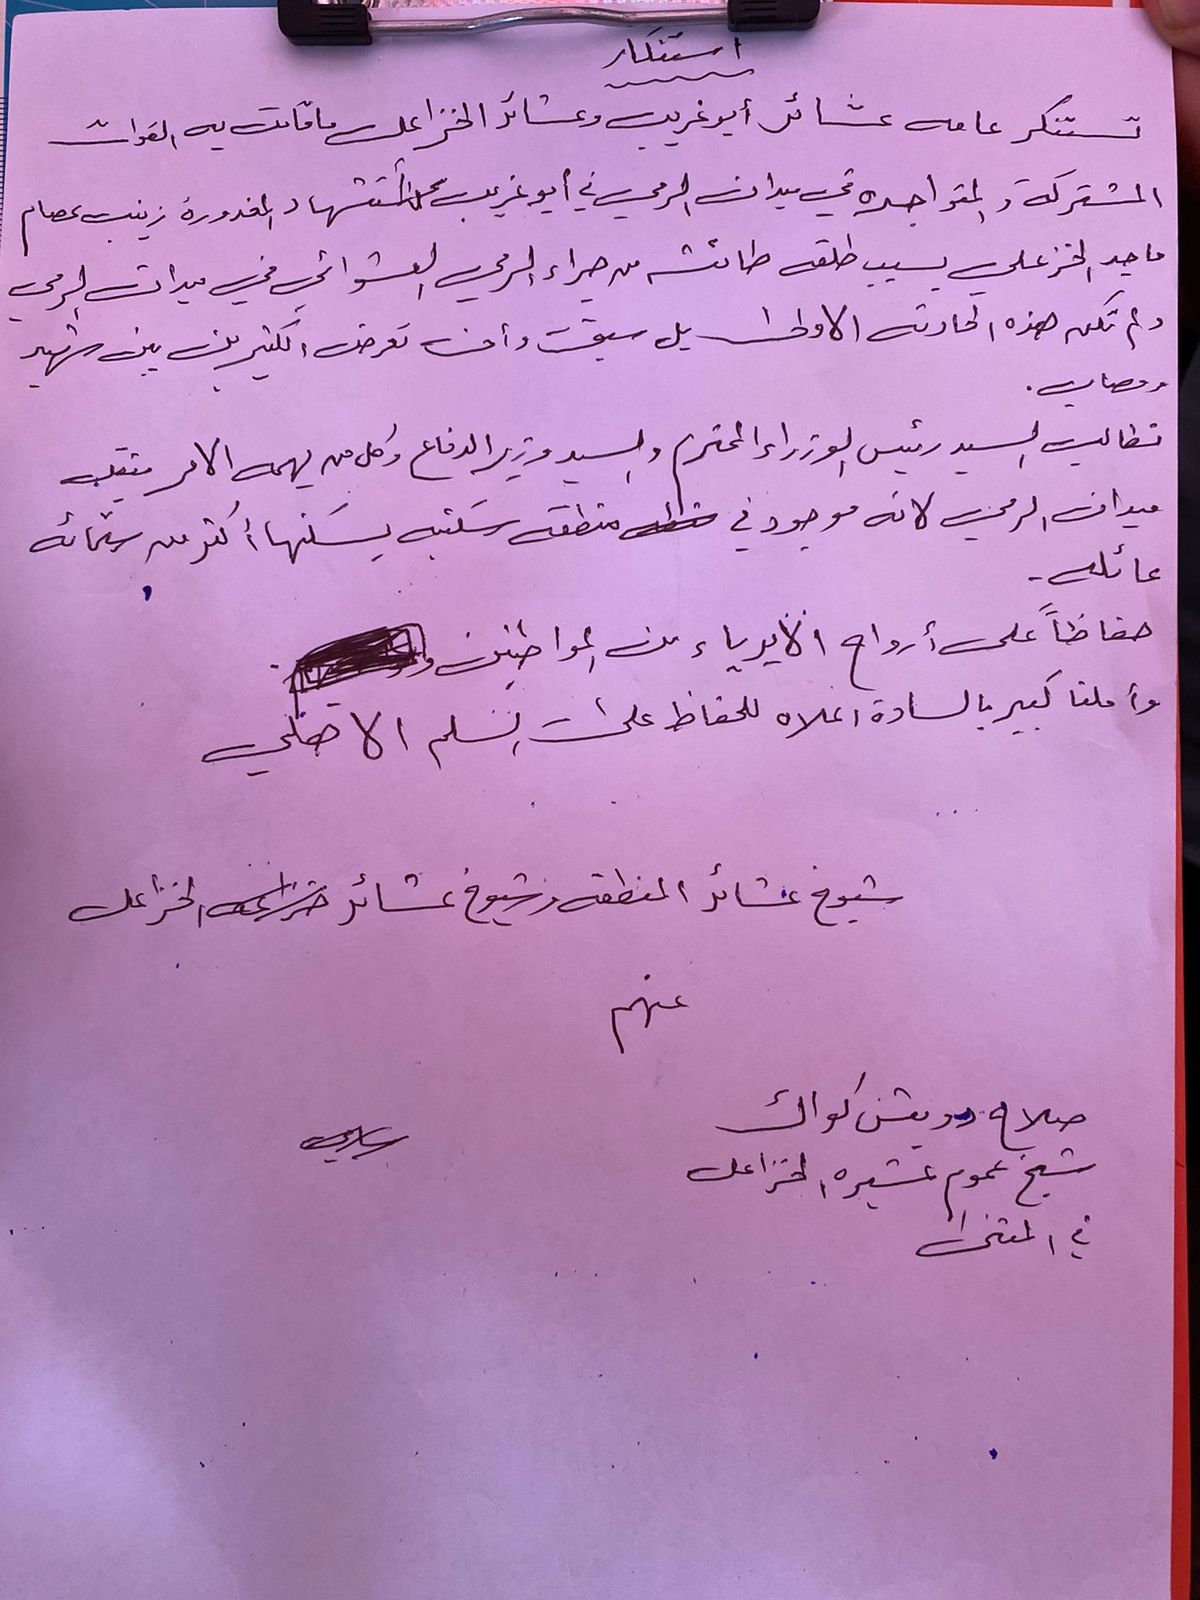 استنكار
تستنكر عامه عشائر أبو غريب وعشائر الخزاعل ماقامت به القوات
المشتركة والمتواجده في ميدان الرمي في أبو غريب أستشهاد المغدورة زينب عصام
ماجد الخزعلي بسبب طلقه طائشه من جراء الرمي العشوائي في ميدان الرمي
ولم تكن هذه الحادثه الاولى بل سبقت وأن تعرض الكثيرين بين شهيد
ومصاب .
نطالب السيد رئيس الوزراء المحترم والسيد وزير الدفاع وكل من يهمه الامر بنقل
ميدان الرمي لانه موجود في منطقه سكنيه يسكنها أكثر من ستمائه
عائله -
حفاظاً على أرواح الأبرياء من المواطنين
وأملنا كبير بالسادة اعلاه للحفاظ على السلم الاهلي
شيوخ عشائر المنطقه وشيوخ عشائر الخزاعل
عنهم
صلاح درويش كواك
شيخ عموم عشيره الخزاعل
في المثنى